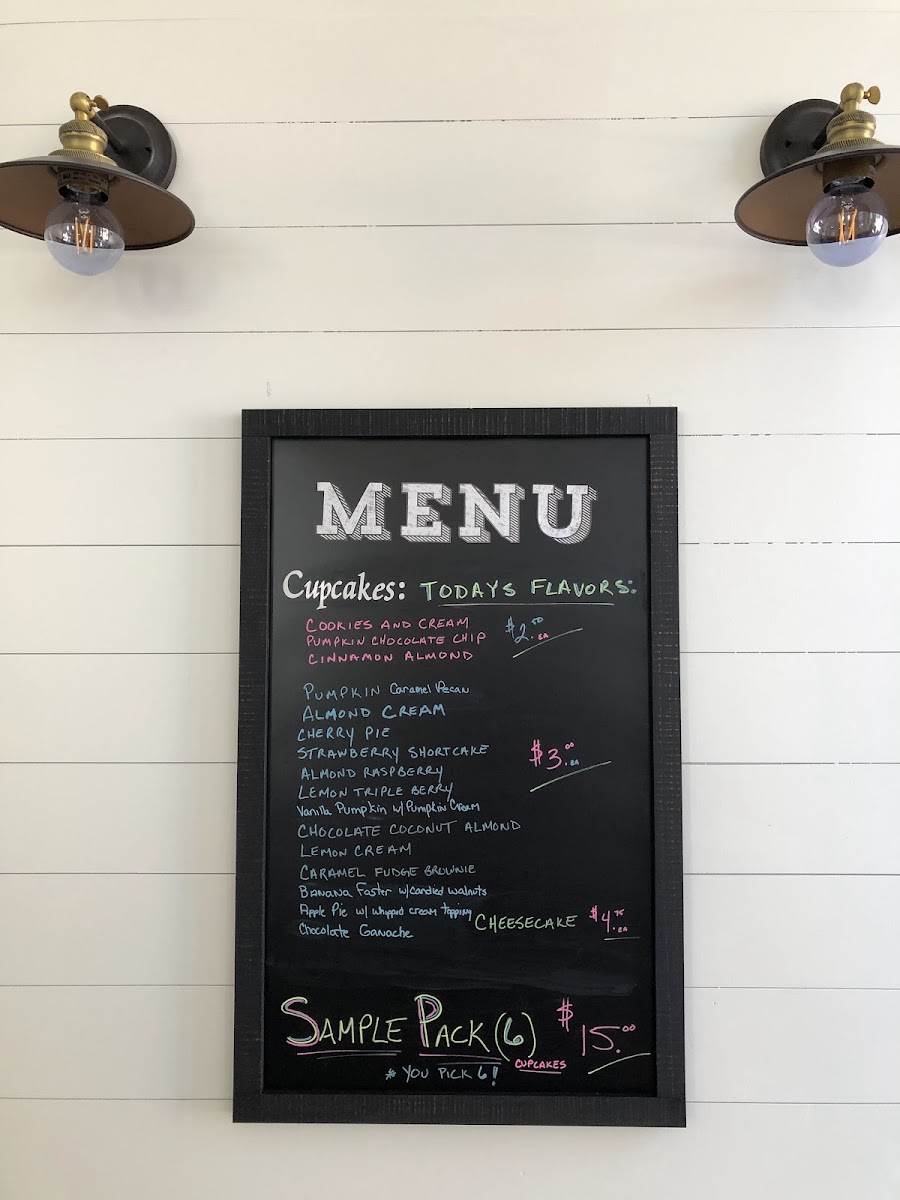 MENU
Cupcakes: TODAYS FLAVORS:
COOKIES AND CREAM
PUMPKIN CHOCOLATE CHIP $2.50 EA
CINNAMON ALMOND
PUMPKIN Caramel Pecan
ALMOND CREAM
CHERRY PIE
STRAWBERRY SHORTCAKE $3.00 EA
ALMOND RASPBERRY
LEMON TRIPLE BERRY
Vanilla Pumpkin w/ Pumpkin Cream
CHOCOLATE COCONUT ALMOND
LEMON CREAM
CARAMEL FUDGE BROWNIE
BANANA Foster w/ candied walnuts
Apple Pie w/ whipped cream topping
CHEESECAKE $4.75 EA
Chocolate Ganache
SAMPLE PACK (6) $15.00
CUPCAKES
* YOU PICK 6!